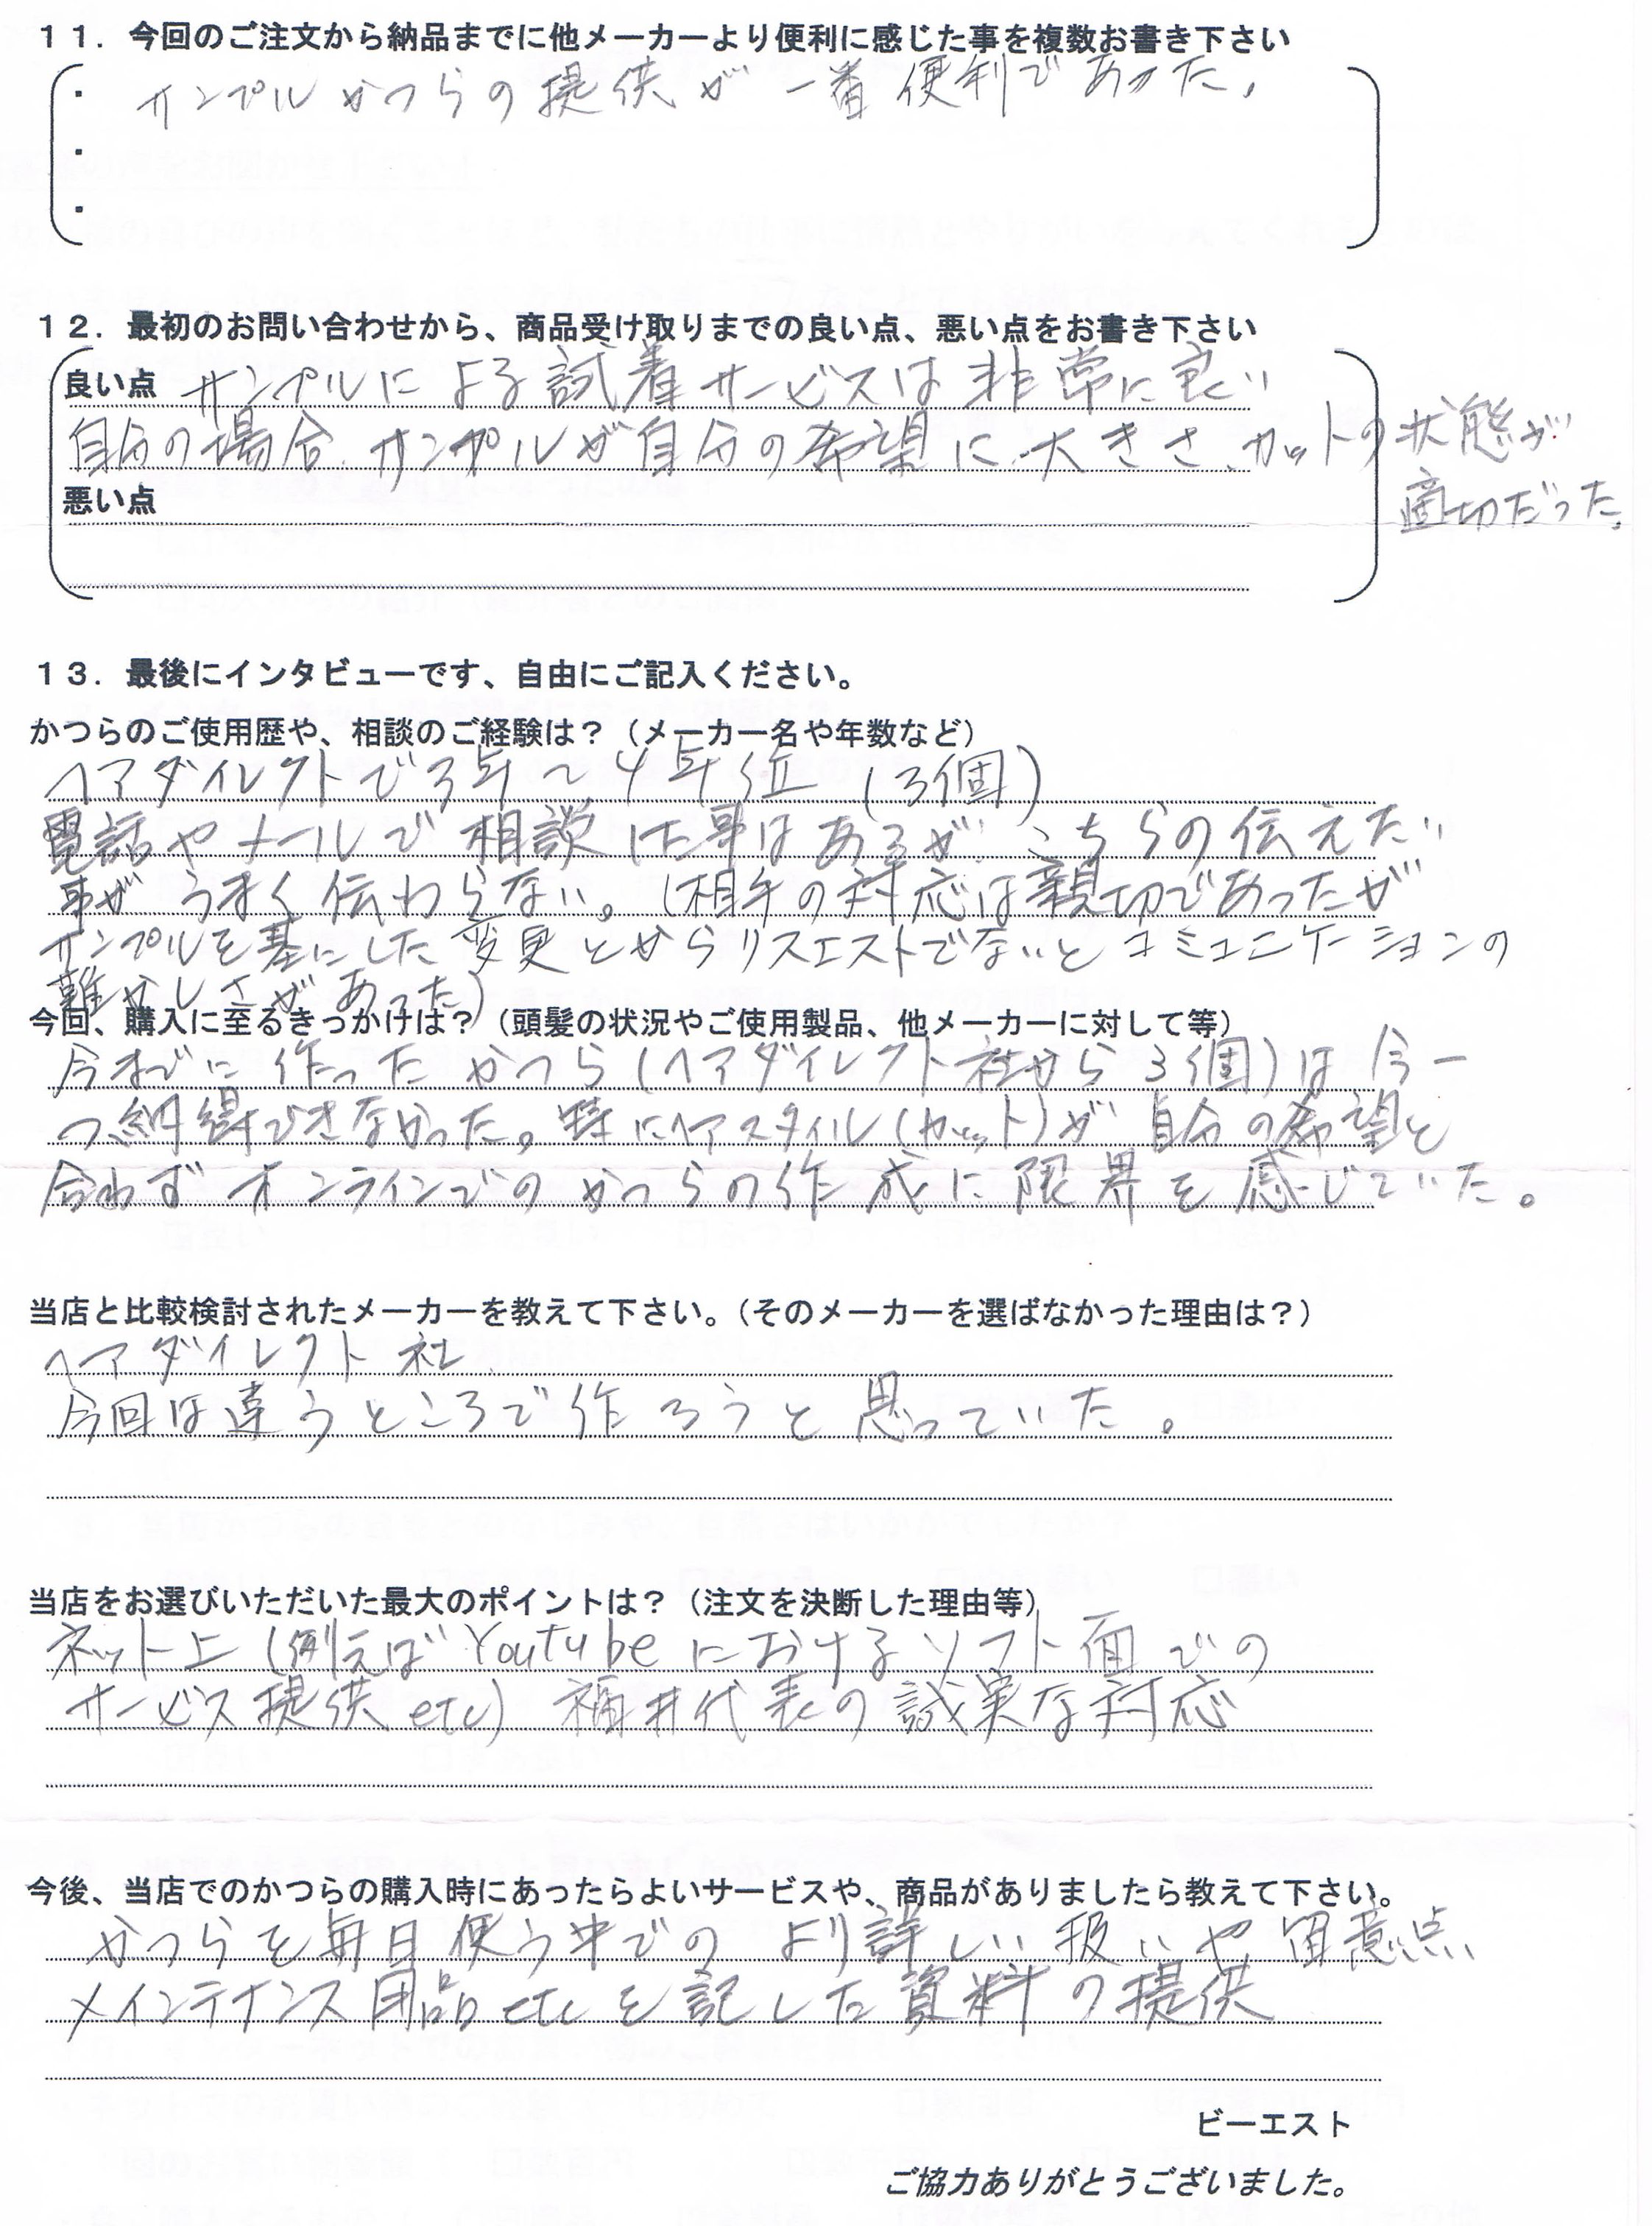 11．今回のご注文から納品までに他メーカーより便利に感じた事を複数お書き下さい
・ サンプルかつらの提供が一番便利であった,
・
・
12．最初のお問い合わせから、商品受け取りまでの良い点、悪い点をお書き下さい
良い点 サンプルによる試着サービスは非常に良い
自分の場合、サンプルが自分の希望に大きさ、カットの状態が
適切だった。
悪い点
13．最後にインタビューです、自由にご記入ください。
かつらのご使用歴や、相談のご経験は？（メーカー名や年数など）
ヘアダイレクトで3年～4年位（3個）
電話やメールで相談した事はあるが、こちらの伝えたい
事がうまく伝わらない。（相手の対応は親切であったが
サンプルを基にした変更とからリスエストでないとコミュニケーションの
難かしさがあった）
今回、購入に至るきっかけは？（頭髪の状況やご使用製品、他メーカーに対して等）
今までに作ったかつら（ヘアダイレクト社から3個）は今一
つ納得できなかった。特にヘアスタイル（カット）が自分の希望と
合わずオンラインでのかつらの作成に限界を感じていた。
当店と比較検討されたメーカーを教えて下さい。（そのメーカーを選ばなかった理由は？）
ヘアダイレクト社
今回は違うところで作ろうと思っていた。
当店をお選びいただいた最大のポイントは？（注文を決断した理由等）
ネット上（例えばYoutubeにおけるソフト面での
サービス提供etc）福井代表の誠実な対応
今後、当店でのかつらの購入時にあったらよいサービスや、商品がありましたら教えて下さい。
かつらを毎日使う中でのより詳しい扱いや留意点、
メインテナンス用品etcを記した資料の提供
ビーエスト
ご協力ありがとうございました。